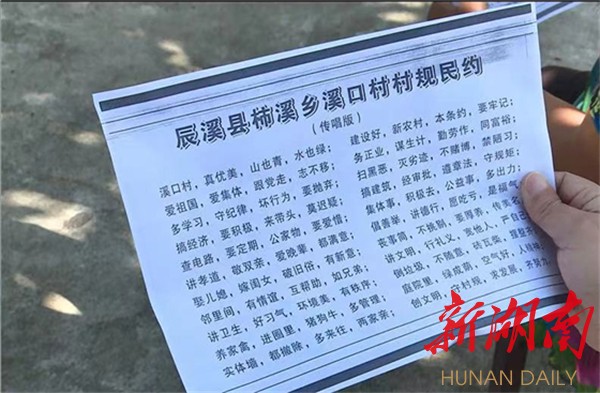 辰溪县柿溪乡溪口村村规民约
(传唱版)
溪口村，真优美，山也青，水也绿；
爱祖国，爱集体，跟党走，志不移；
多学习，守纪律，坏行为，要抛弃；
搞经济，要积极，来带头，莫迟疑；
查电路，要定期，公家物，要爱惜；
讲孝道，敬双亲，爱晚辈，都满意；
娶儿媳，嫁闺女，破旧俗，有新意；
邻里间，有情谊，互帮助，如兄弟；
讲卫生，好习气，环境美，有秩序；
养家禽，进圈里，猪狗牛，多管理；
实体墙，都撤除，多来往，再家亲；
建设好，新农村，本条约，要牢记；
务正业，谋生计，勤劳作，同富裕；
扫黑恶，灭劣迹，不赌博，禁陋习；
搞建筑，经审批，遵章法，守规矩；
集体事，积极去，公益事，多出力；
倡善举，讲德行，愿吃亏，是福气；
丧事简，不挑剔，要厚养，传美名
讲文明，行礼义，宽他人，严自己
倒垃圾，不随意，砖瓦柴，
庭院里，绿成荫，空气好，
创文明，守村规，求发展，
新湖南
HUNAN DAILY